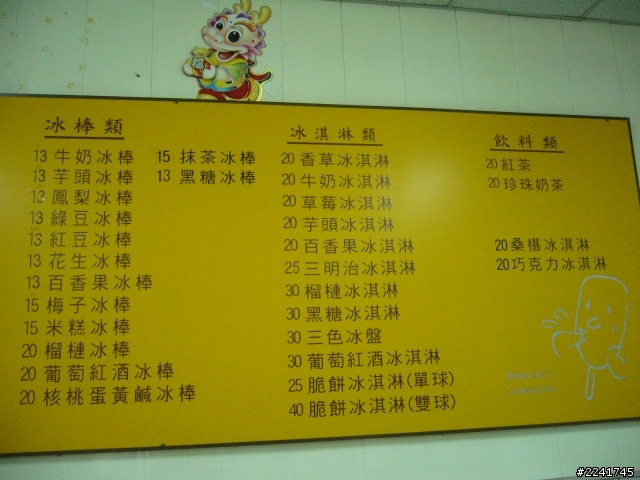 冰棒類
13 牛奶冰棒
13 芋頭冰棒
13 鳳梨冰棒
13 綠豆冰棒
13 紅豆冰棒
13 花生冰棒
13 百香果冰棒
15 梅子冰棒
15 米糕冰棒
20 榴槤冰棒
20 葡萄紅酒冰棒
20 核桃蛋黃鹹冰棒
15 抹茶冰棒
13 黑糖冰棒
冰淇淋類
20 香草冰淇淋
20 牛奶冰淇淋
20 草莓冰淇淋
20 芋頭冰淇淋
20 百香果冰淇淋
25 三明治冰淇淋
30 榴槤冰淇淋
30 黑糖冰淇淋
30 三色冰盤
30 葡萄紅酒冰淇淋
25 脆餅冰淇淋(單球)
40 脆餅冰淇淋(雙球)
飲料類
20 紅茶
20 珍珠奶茶
20 桑椹冰淇淋
20 巧克力冰淇淋
#2241745